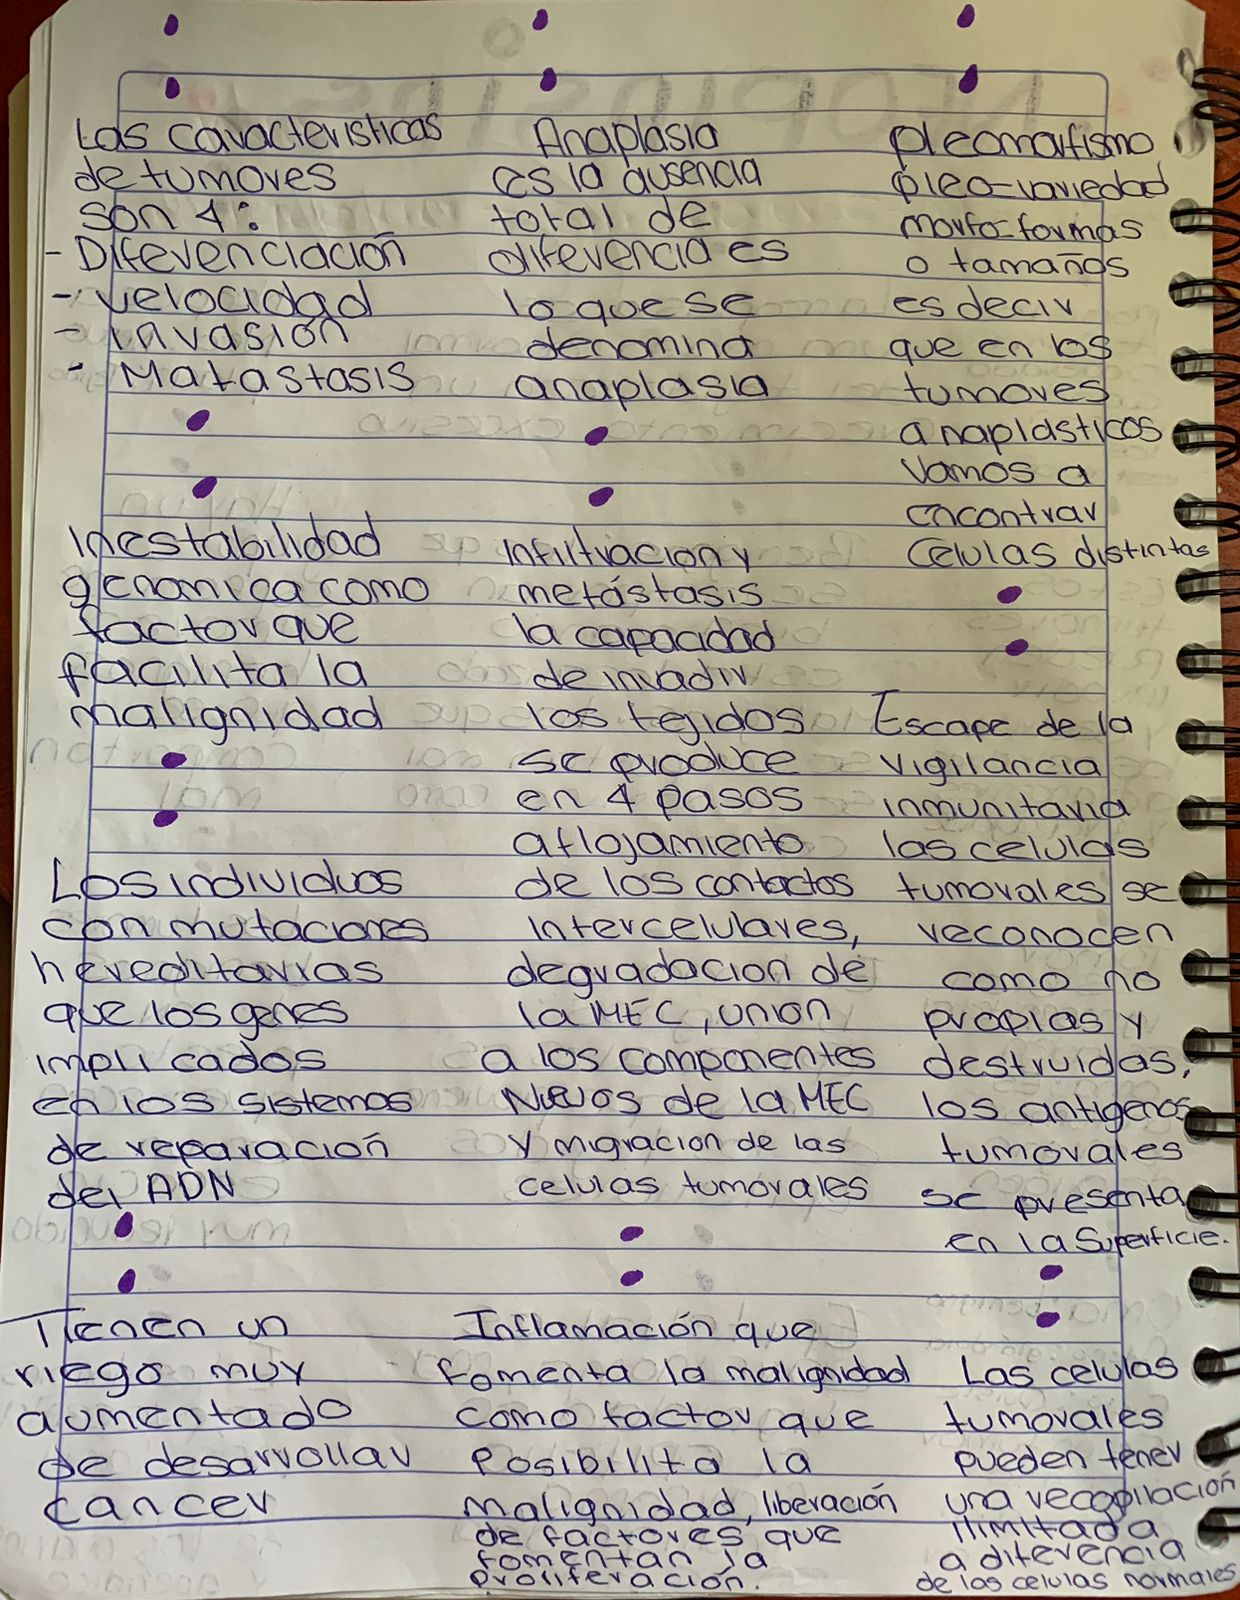 Las caracteristicas
de tumores
son 4:
- Diferenciación
- velocidad
- invasión
- Matastasis
Inestabilidad
genomica como
factor que
facilita la
malignidad
Los individuos
con mutaciones
hereditarias
que los genes
implicados
en los sistemas
de reparación
del ADN
Tienen un
riego muy
aumentado
de desarrollar
cancer
Anaplasia
es la ausencia
total de
diferencia es
lo que se
denomina
anaplasia
infiltracion y
metástasis
la capacidad
de invadir
los tejidos
se produce
en 4 pasos
aflojamiento
de los contactos
intercelulares,
degradacion de
la MEC, union
a los componentes
Nuevos de la MEC
y migracion de las
celulas tumorales
Inflamación que
fomenta la malignidad
como factor que
Posibilita la
malignidad, liberación
de factores que
fomentan la
proliferación.
pleomorfismo
pleo-variedad
morfo-formas
o tamaños
es decir
que en los
tumores
anaplásticos
vamos a
encontrar
celulas distintas
Escape de la
vigilancia
inmunitaria
las celulas
tumorales se
reconocen
como no
propias y
destruidas,
los antigenos
tumorales
se presenta
en la superficie.
Las celulas
tumorales
pueden tener
una recopilación
ilimitada
a diferencia
de las celulas normales